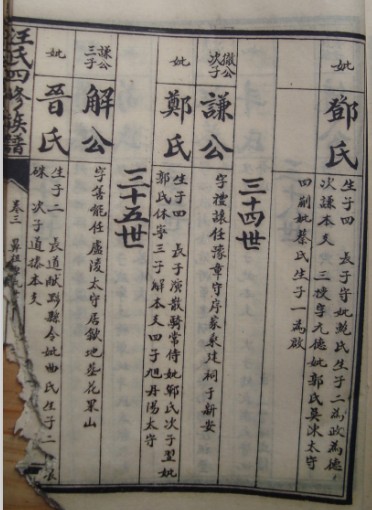 妣
鄧氏
生子四 長子守妣鮑氏生子二為政為德
次謙本支 三援字元德妣郭氏吳沐太守
四剛妣蔡氏生子一為啟
三十四世
徽公次子
謙公
字禮讓任豫章守序蒙泉建祠于新安
妣
鄭氏
生子四 長子演散騎常侍妣鄭氏次子型妣
郭氏休寧三子解本支四子旭丹陽太守
三十五世
謙公三子
解公
字善能任廬陵太守居歙地葬花果山
妣
晉氏
生子二 長道獻黟縣令妣曲氏生子二 長
次子道本支
汪氏四修族譜
卷三